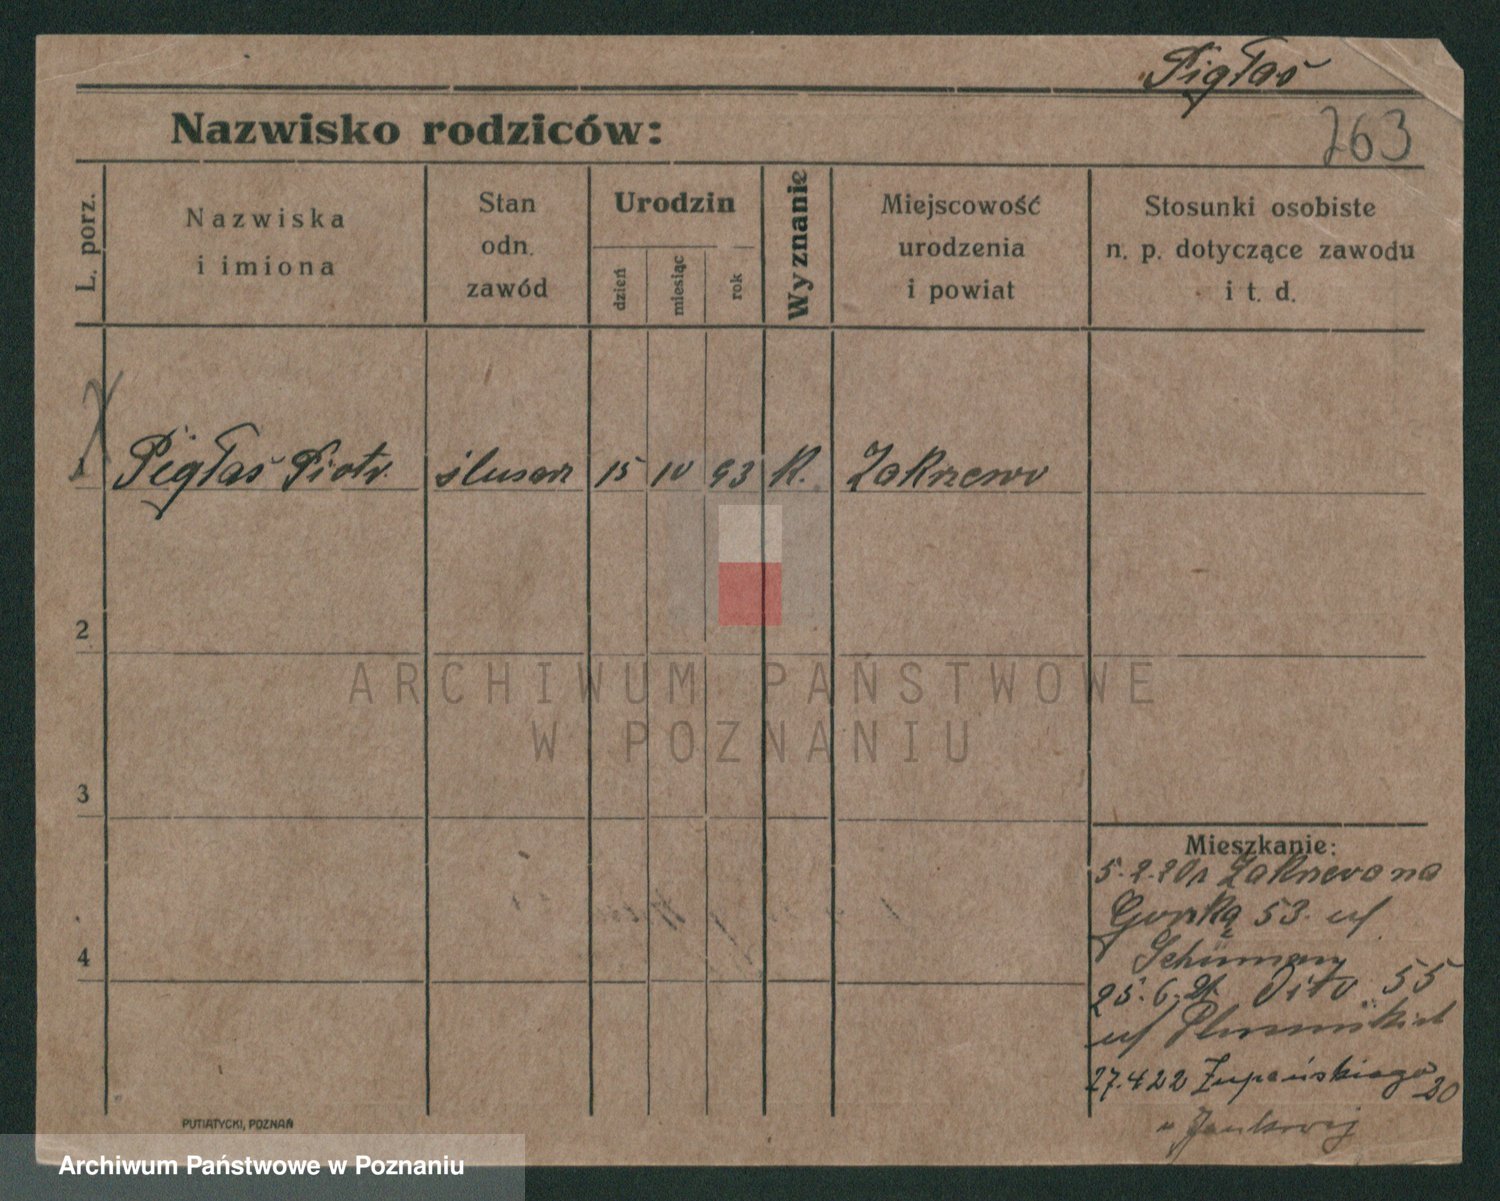 Pigłaś
Nazwisko rodziców:
263
L. porz.
Nazwiska
i imiona
Stan
odn.
zawód
Urodzin
dzień
miesiąc
rok
Wyznanie
Miejscowość
urodzenia
i powiat
Stosunki osobiste
n. p. dotyczące zawodu
i t. d.
1 Pigłaś Piotr. ślusarz 15 10 93 K. Zakrzewo
2
3
4
ARCHIWUM PAŃSTWOWE
W POZNANIU
Mieszkanie:
5.2.20r Zakrzewo na
53. u/
25.6.21 Dito 55
u/
27.4.22 Żupańskiego 20
u
PUTIATYCKI, POZNAŃ
Archiwum Państwowe w Poznaniu